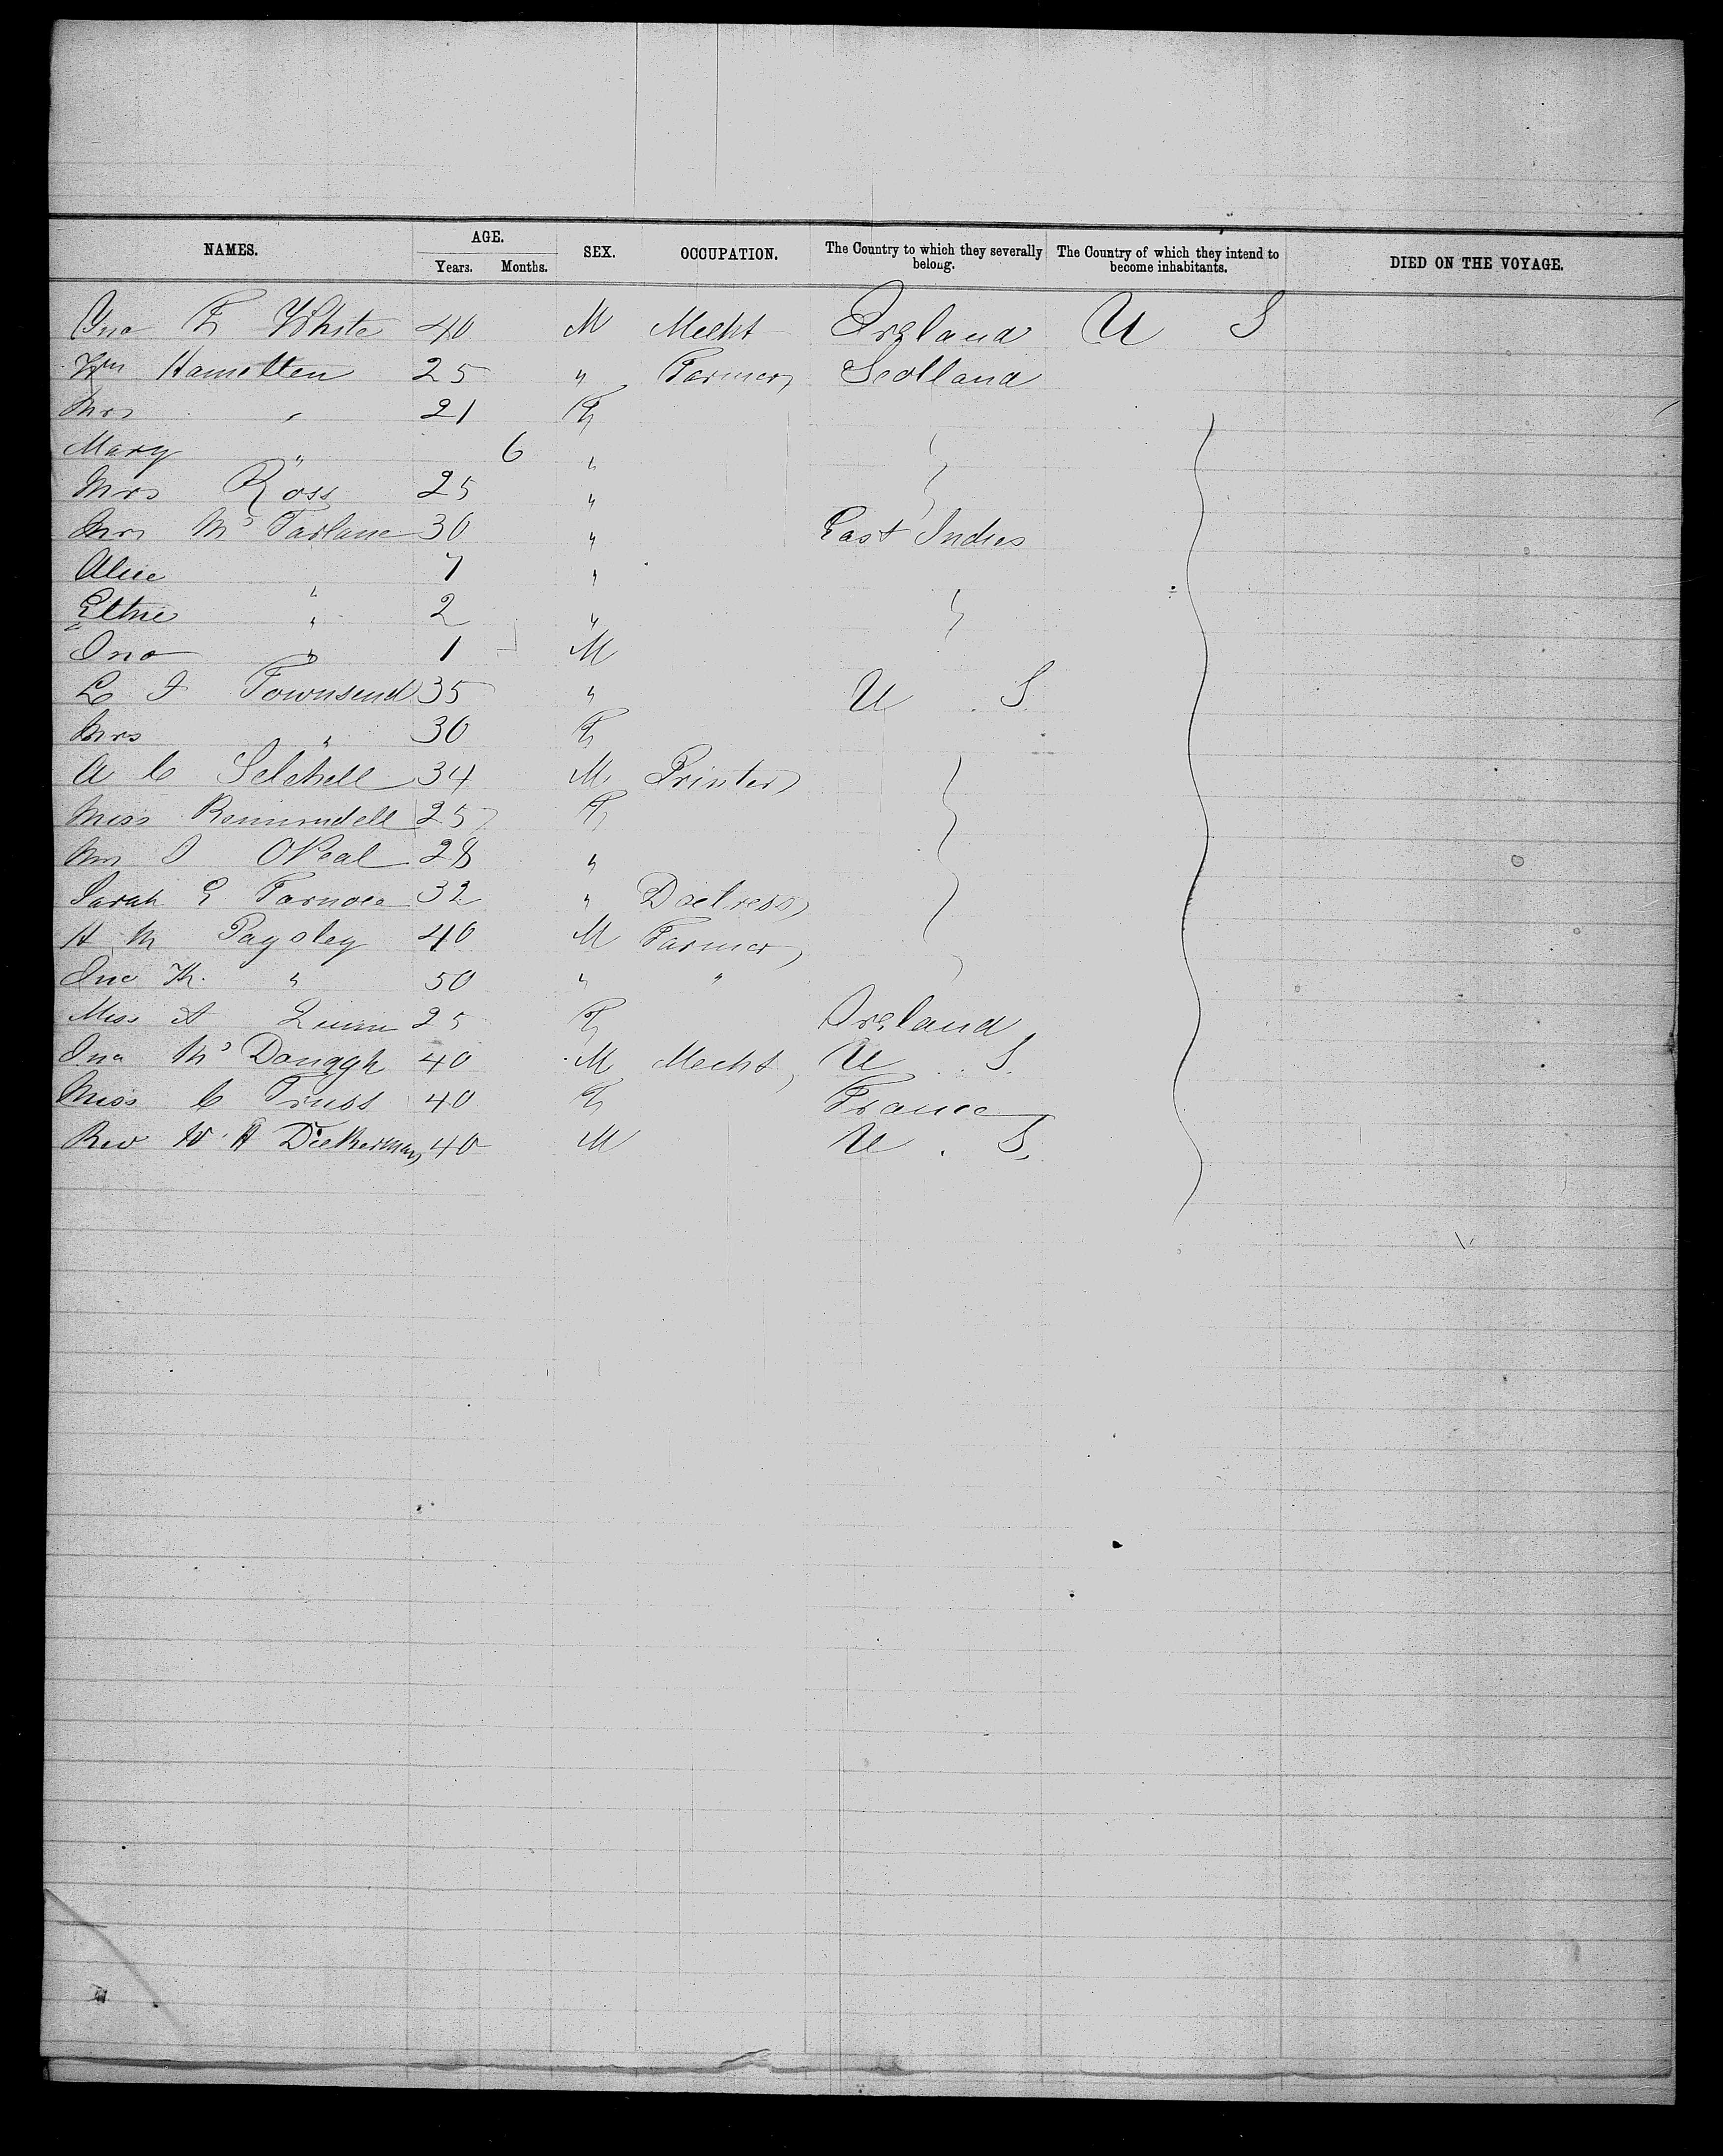 NAMES. AGE. SEX. OCCUPATION. The Country to which they severally belong. The Country of which they intend to become inhabitants. DIED ON THE VOYAGE.
Years. Months.
Jno F White 40 M Mecht Ireland U S
Wm Hamelten 25 " Farmer Scotland
Mrs " 21 F
Mary " 6 "
Mrs Ross 25 "
Mrs Mc Farlane 30 " East Indies
Alice " 7 "
" 2 "
Jno " 1 M
Townsend 35 " U S
Mrs " 30 F
A C 34 M Printer
Miss 25 F
Mrs J ONeal 28 "
Sarah E 32 " Doctress
H M Paysley 40 M Farmer
Jno " 50 " "
Miss A Quinn 25 F Ireland
Jno Mc 40 M Mecht U S.
Miss C Truss 40 F France
Rev W H Dickerman 40 M U S.